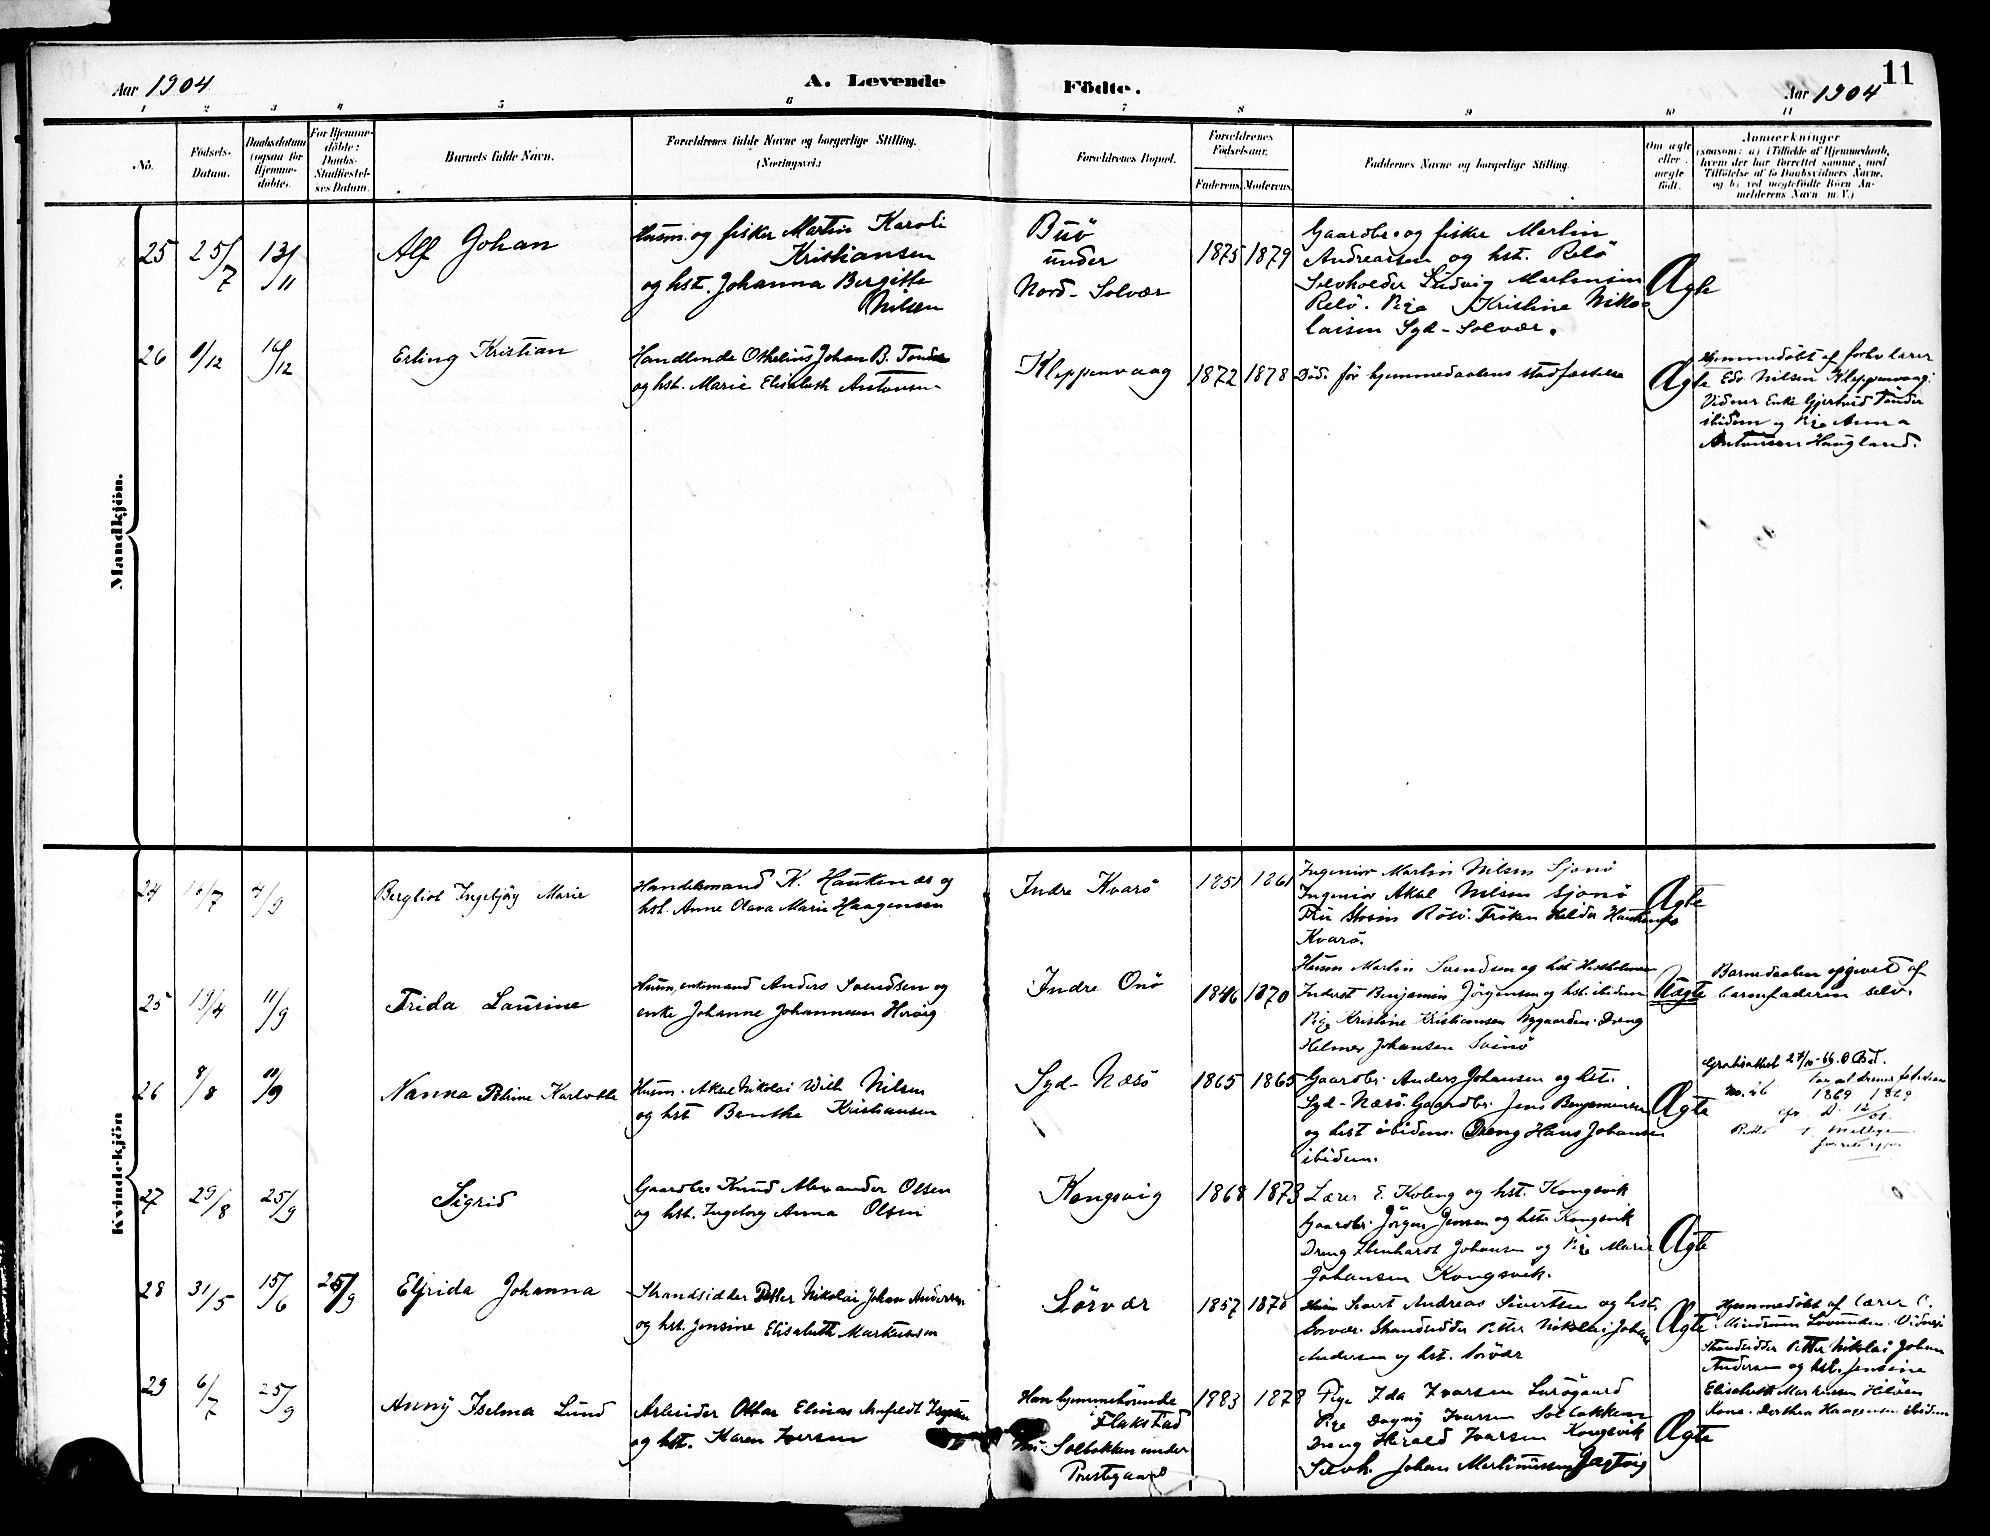 11
Aar 1904 A. Levende Födte. Aar 1904
1 2 3 4 5 6 7 8 9 10 11
No.
Födsels-Datum.
Daabsdatum (ogsaa for Hjemmedöbte).
For Hjemmedöbte: Daabs-Stadfæstelses Datum.
Barnets fulde Navn.
Forældrenes fulde Navne og borgerlige Stilling. (Næringsvei.)
Forældrenes Bopæl.
Forældrenes Födselsaar.
Faderens. Moderens.
Faddernes Navne og borgerlige Stilling.
Om ægte eller uægte födt.
Anmærkninger
(saasom: a) i Tilfælde af Hjemmedaab,
hvem der har forrettet samme, med
Tilföielse af to Daabsvidners Navne,
og b) ved uægtefödte Börn An-
melderens Navn m. V.)
Mandkjön.
25 25/7 13/11 Alf Johan
Husm. og fisker Martin Karoli
Kristiansen
og hst. Johanna Bergitte
Nilsen
Buö
under
Nord-Solvær
1875 1879
Gaardbr. og fisker Martin
Andreassen og hst. Relö
Selvholder Ludvig Martinsen
Relö. Pige Kristine Niko-
laisen Syd-Solvær.
Ægte
26 9/12 16/12 Erling Kristian
Handlende Othelius Johan B. Tonder
og hst. Marie Elisabeth Antonsen
Kleppenvaag
1872 1878
Död før hjemmedaabens stadfæstelse
Ægte
Hjemmedöbt af forhv lærer
Edv Nilsen Kleppenvaag.
Vidner Enke Gjertrud Tonder
ibidem og Pige Anna
Antonsen Haugland.
Kvindekjön
24 16/7 4/9 Bergliot Ingebjörg Marie
Handelsmand K. Haukenæs og
hst. Anne Olava Marie Haagensen
Indre Kvarö
1851 1861
Ingeniör Martin Nilsen Sjonö
Ingeniör Aksel Nilsen Sjonö
Frue Stosin Rösö. Fröken Helda Haukenæs
Kvarö.
Ægte
25 19/4 11/9 Frida Laurine
Husm, enkemand Anders Svendsen og
enke Johanne Johannesen Hervig
Indre Onö
1846 1870
Husm Martin Svendsen og hst Hestholmen
Inderst Benjamin Jörgensen og hst. ibidem
Pige Kristine Kristiansen Nygaarden. Dreng
Helmer Johansen Svinö
Uægte
Barnedaaben opgivet af
barnefaderen selv.
26 8/8 11/9 Nanna Petrine Karlotte
Husm. Aksel Nikolai Wilh Nilsen
og hst Benthe Kristiansen
Syd-Næsö
1865 1865
Gaardbr. Anders Johansen og hst.
Syd-Næsö. Gaardbr. Jens Benjaminsen
og hst ibidem. Dreng Hans Johansen
ibidem.
Ægte
No. 26
1869 1869
27 29/8 25/9 Sigrid
Gaardbr. Knud Alexander Olsen
og hst. Ingeborg Anna Olsen
Kongsvig
1868 1873
Lærer E. Koleng og hst. Kongsvik
Gaardbr. Jörgen Jensen og hst. Kongsvik
Dreng Ebenhardt Johansen og Pige Marie
Johansen Kongsvik.
Ægte
28 31/5 15/6 25/9 Elfrida Johanna
Strandsidder Petter Nikolai Johan Andersen
og hst. Jensine Elisabeth Markussen
Sörvær
1857 1870
Husm Sivert Andreas Sivertsen og hst.
Sörvær. Strandsidder Petter Nikolai Johan
Andersen og hst. Sörvær
Ægte
Hjemmedöbt af lærer C.
Mindrum Lovunden. Vidner:
Strandsidder Petter Nikolai Johan
Andersen og hst. Jensine
Elisabeth Markussen
Kone Dorthea Haagensen ibidem
29 6/7 25/9 Anny Iselma Lund
Arbeider Ottar Elinas Arnfeldt
og hst. Karen Iversen
Han hjemmehörende
Flakstad
Solbakken under
Prestegaard
1883 1878
Pige Ida Ivarsen
Pige Dagny Ivarsen Solbakken
Dreng Herald Ivarsen Kongsvik
Selvh. Johan Martinussen Jægtvig
Ægte